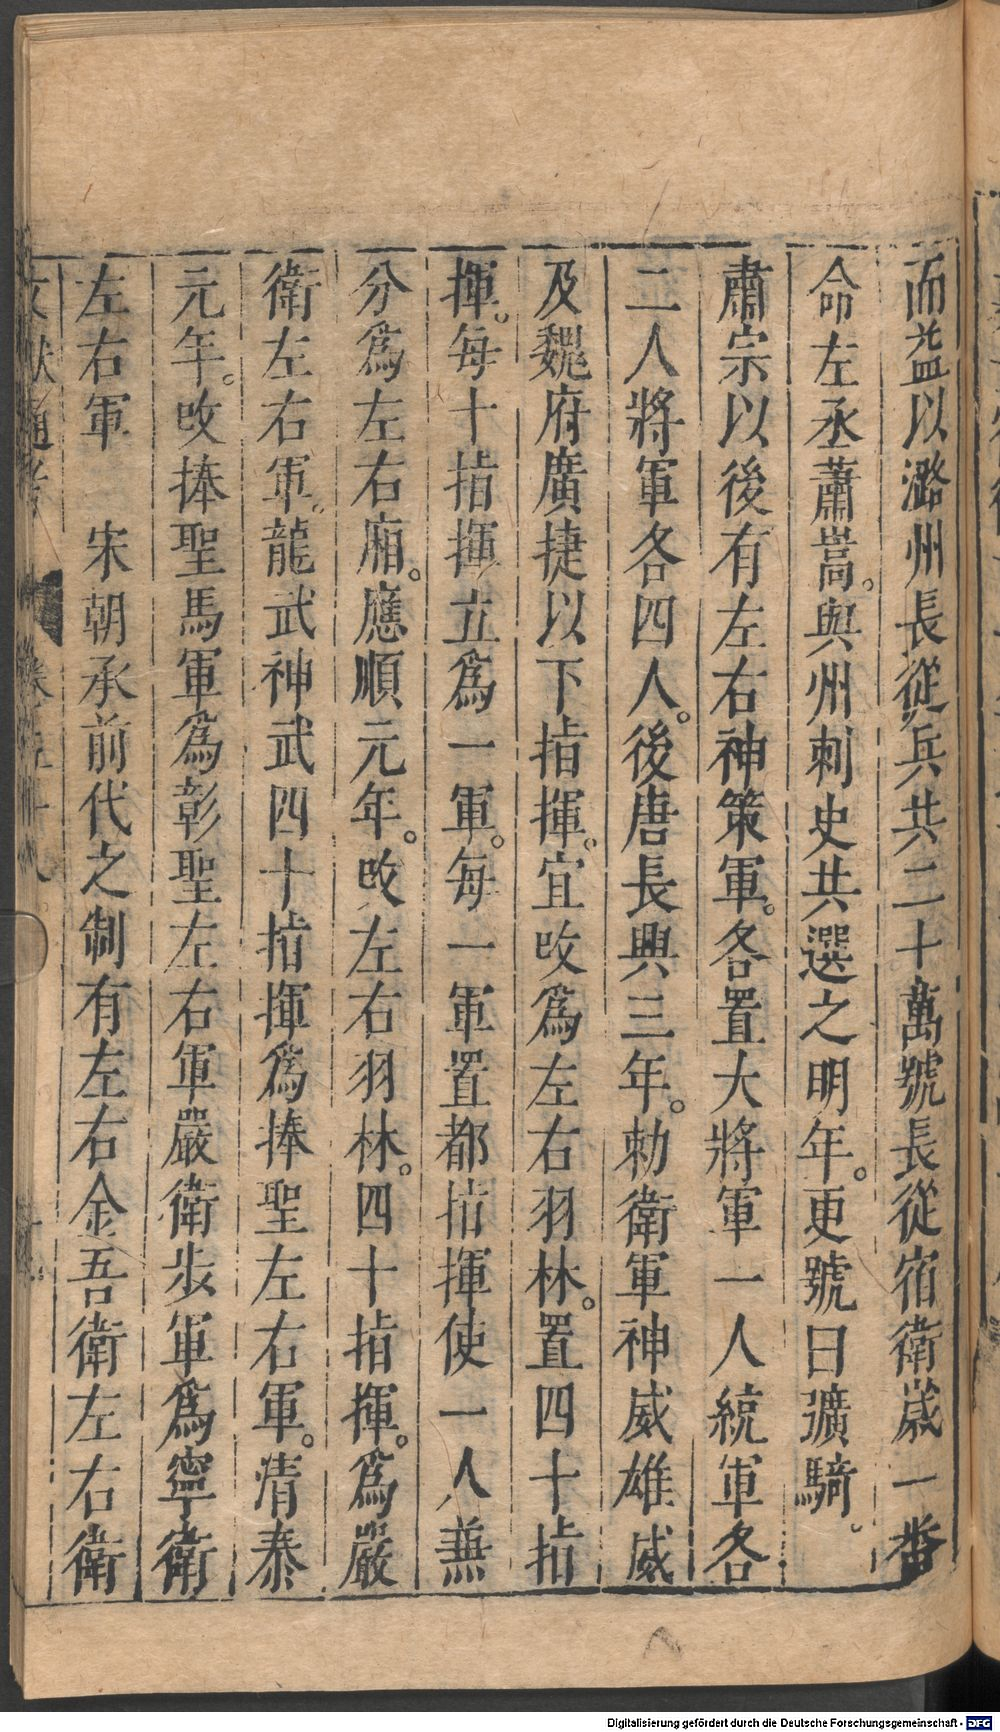 而益以潞州長從兵共二十萬號長從宿衛歲一番
命左丞蕭嵩。與州刺史共選之明年。更號曰彍騎。
肅宗以後有左右神策軍。各置大將軍一人統軍各
二人將軍各四人。後唐長興三年。勅衛軍神威雄威
及魏府廣捷以下指揮。宜改為左右羽林。置四十指
揮。每十指揮立為一軍。每一軍置都指揮使一人兼
分為左右廂。應順元年。改左右羽林。四十指揮。為嚴
衛左右軍。龍武神武四十指揮為捧聖左右軍。清泰
元年。改捧聖馬軍為彰聖左右軍嚴衛步軍為寧衛
左右軍　宋朝承前代之制有左右金吾衛左右衛
文獻通考　卷五十八
Digitalisierung gefördert durch die Deutsche Forschungsgemeinschaft - DFG